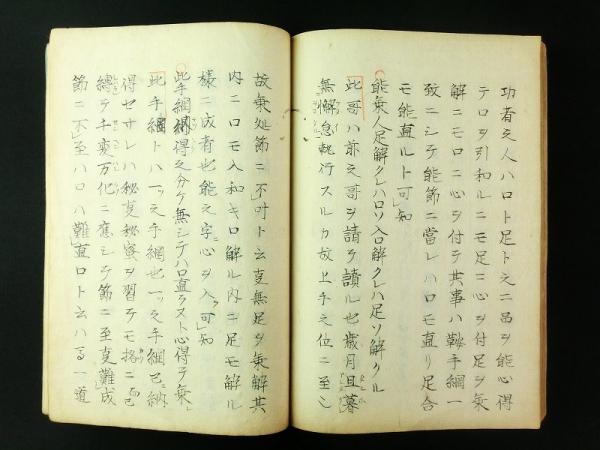 功者之人ハロト足ト之二品ヲ能心得
テロヲ引和ルニモ足ニ心ヲ付足ヲ乗
解ニモロニ心ヲ付テ其事ハ鞍手綱一
致ニシテ能節ニ當レハロモ直リ足合
モ能直ルト可知
能乗人足解クレハロソ入口解クレハ足ソ解クル
此哥ハ前之哥ヲ請テ讀ル也歳月旦暮
無懈怠執行スルカ故上手之位ニ至シ
故乗処節ニ不叶ト云㕝無足ヲ乗解其
内ニロモ入和キロ解ル内ニ足モ解ル
様ニ成者也能之字心ヲ入可知
此手綱得之分ケ無シテハロ直ラスト心得テ乗
此手綱トハ一ッ之手綱也一ッ之手綱己納
得セサレハ秘㕝秘蜜ヲ習テモ格ニ
縛テ千変万化ニ應シテ節ニ至㕝難成
節ニ不至ハロハ難直ロト云ハ一道